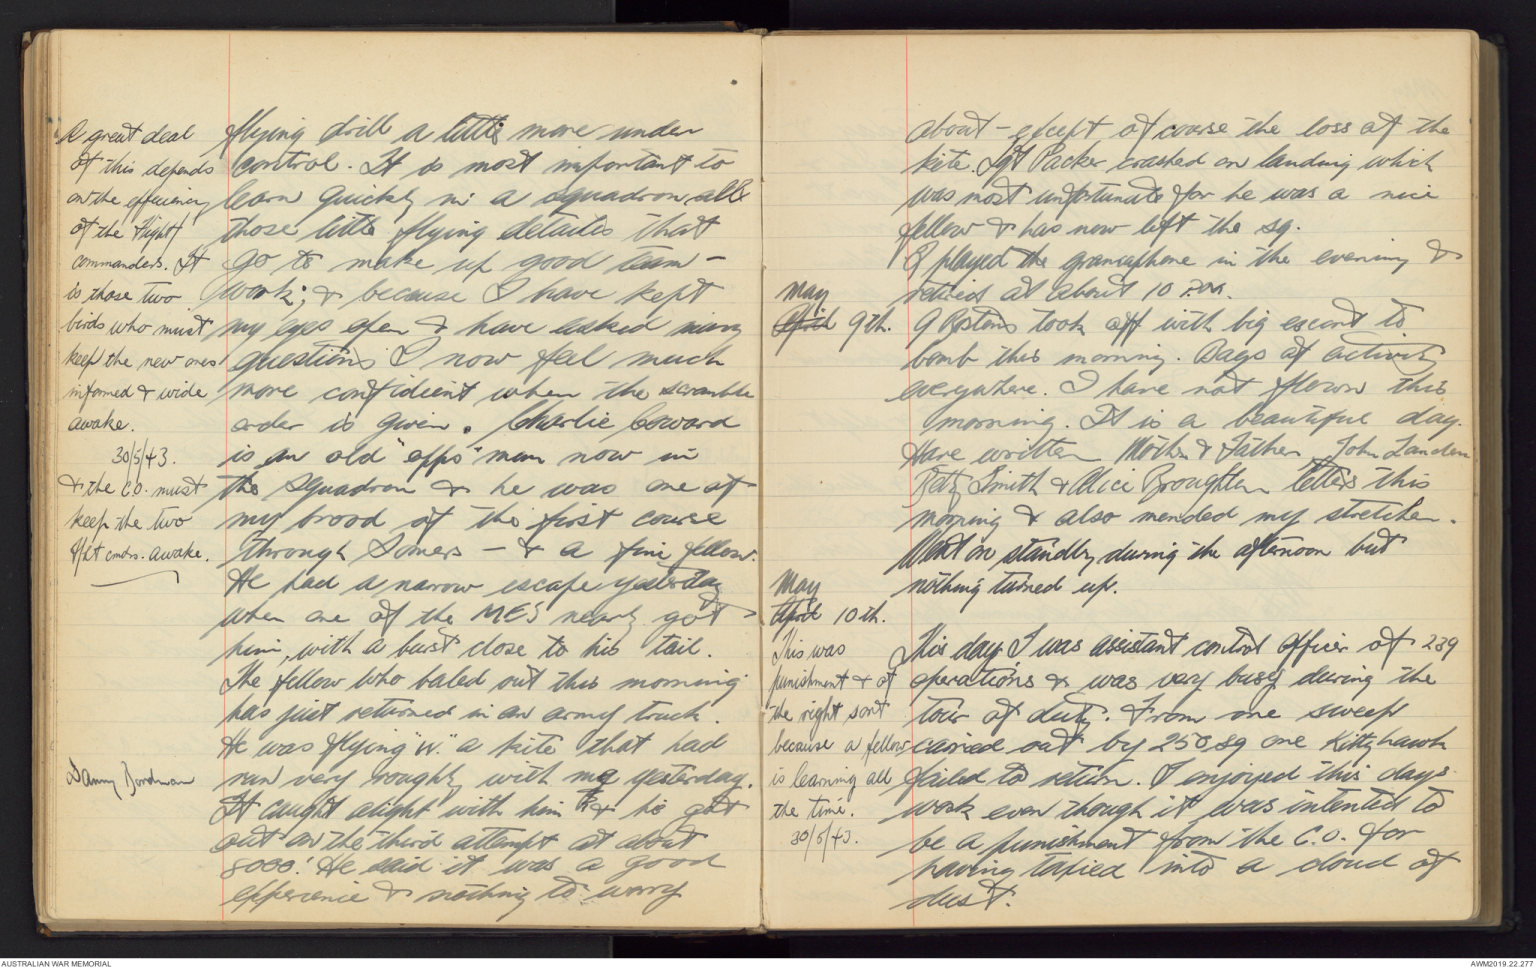 A great deal
of this depends
on the efficiency
of the Flight
commanders. It
is those two
birds who must
keep the new ones
informed & wide
awake.
30/5/43.
& the C.O. must
keep the two
Flt cmdrs. awake.
Danny Boardman
flying drill a little more under
control. It is most important to
learn quickly in a squadron, all
those little flying details that
go to make up good team -
work; & because I have kept
my eyes open & have asked many
questions I now feel much
more confident when the scramble
order is given. Charlie Coward
is an old "opps" man now in
the squadron & he was one of
my brood of the first course
through Somers - & a fine fellow.
He had a narrow escape yesterday
when one of the ME'S nearly got
him, with a burst close to his tail.
The fellow who baled out this morning
has just returned in an army truck.
He was flying "W." a kite that had
run very roughly with me yesterday.
It caught alight with him & he got
out on the third attempt at about
8000'. He said it was a good
experience & nothing to worry
about - except of course the loss of the
kite. Sgt Packer crashed on landing which
was most unfortunate for he was a nice
fellow & has now left the sq.
I played the gramaphone in the evening &
retired at about 10 p.m.
May
April 9th.
9 Bostons took off with big escort to
bomb this morning. Bags of activity
everywhere. I have not flown this
morning. It is a beautiful day.
Have written Mother & Father, John Landen
Betty Smith & Alice Broughton letters this
morning & also mended my stretcher.
Went on standby during the afternoon but
nothing turned up.
May
April 10th.
This was
punishment & of
the right sort
because a fellow
is learning all
the time.
30/5/43.
This day I was assistant control officer of 239
operations & was very busy during the
tour of duty. From one sweep
carried out by 250 sq one Kittyhawk
failed to return. I enjoyed this days
work even though it was intented to
be a punishment from the C.O. for
having taxied into a cloud of
dust.
AUSTRALIAN WAR MEMORIAL
AWM2019.22.277